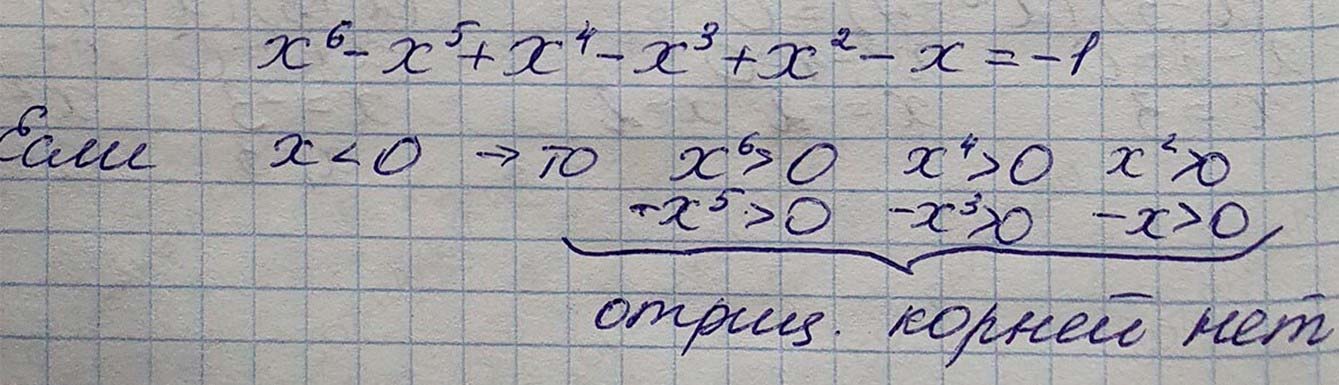 x⁶-x⁵+x⁴-x³+x²-x=-1
Если x<0 → то x⁶>0 x⁴>0 x²>0
-x⁵>0 -x³>0 -x>0
отриц. корней нет